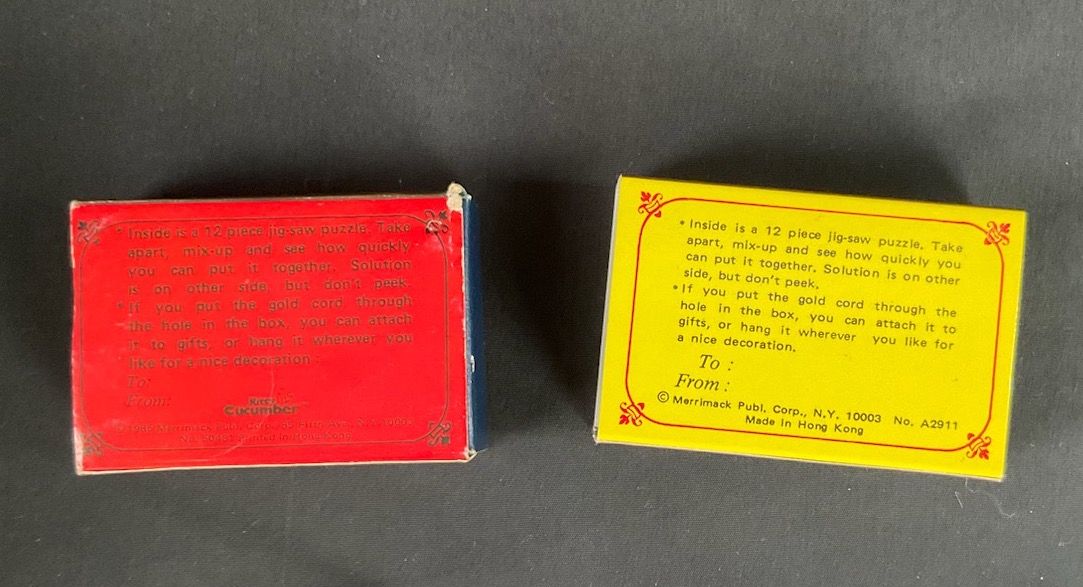 • Inside is a 12 piece jig-saw puzzle. Take
apart, mix-up and see how quickly
you can put it together. Solution
is on other side, but don't peek.
• If you put the gold cord through
the hole in the box, you can attach
it to gifts, or hang it wherever you
like for a nice decoration.
To:
From:
Cucumber
Merrimack Publ. Corp., 85 Fifth Ave., N.Y. 10003
No. Printed in Hong Kong
• Inside is a 12 piece jig-saw puzzle. Take
apart, mix-up and see how quickly you
can put it together. Solution is on other
side, but don't peek.
• If you put the gold cord through the
hole in the box, you can attach it to
gifts, or hang it wherever you like for
a nice decoration.
To :
From :
© Merrimack Publ. Corp., N.Y. 10003 No. A2911
Made in Hong Kong